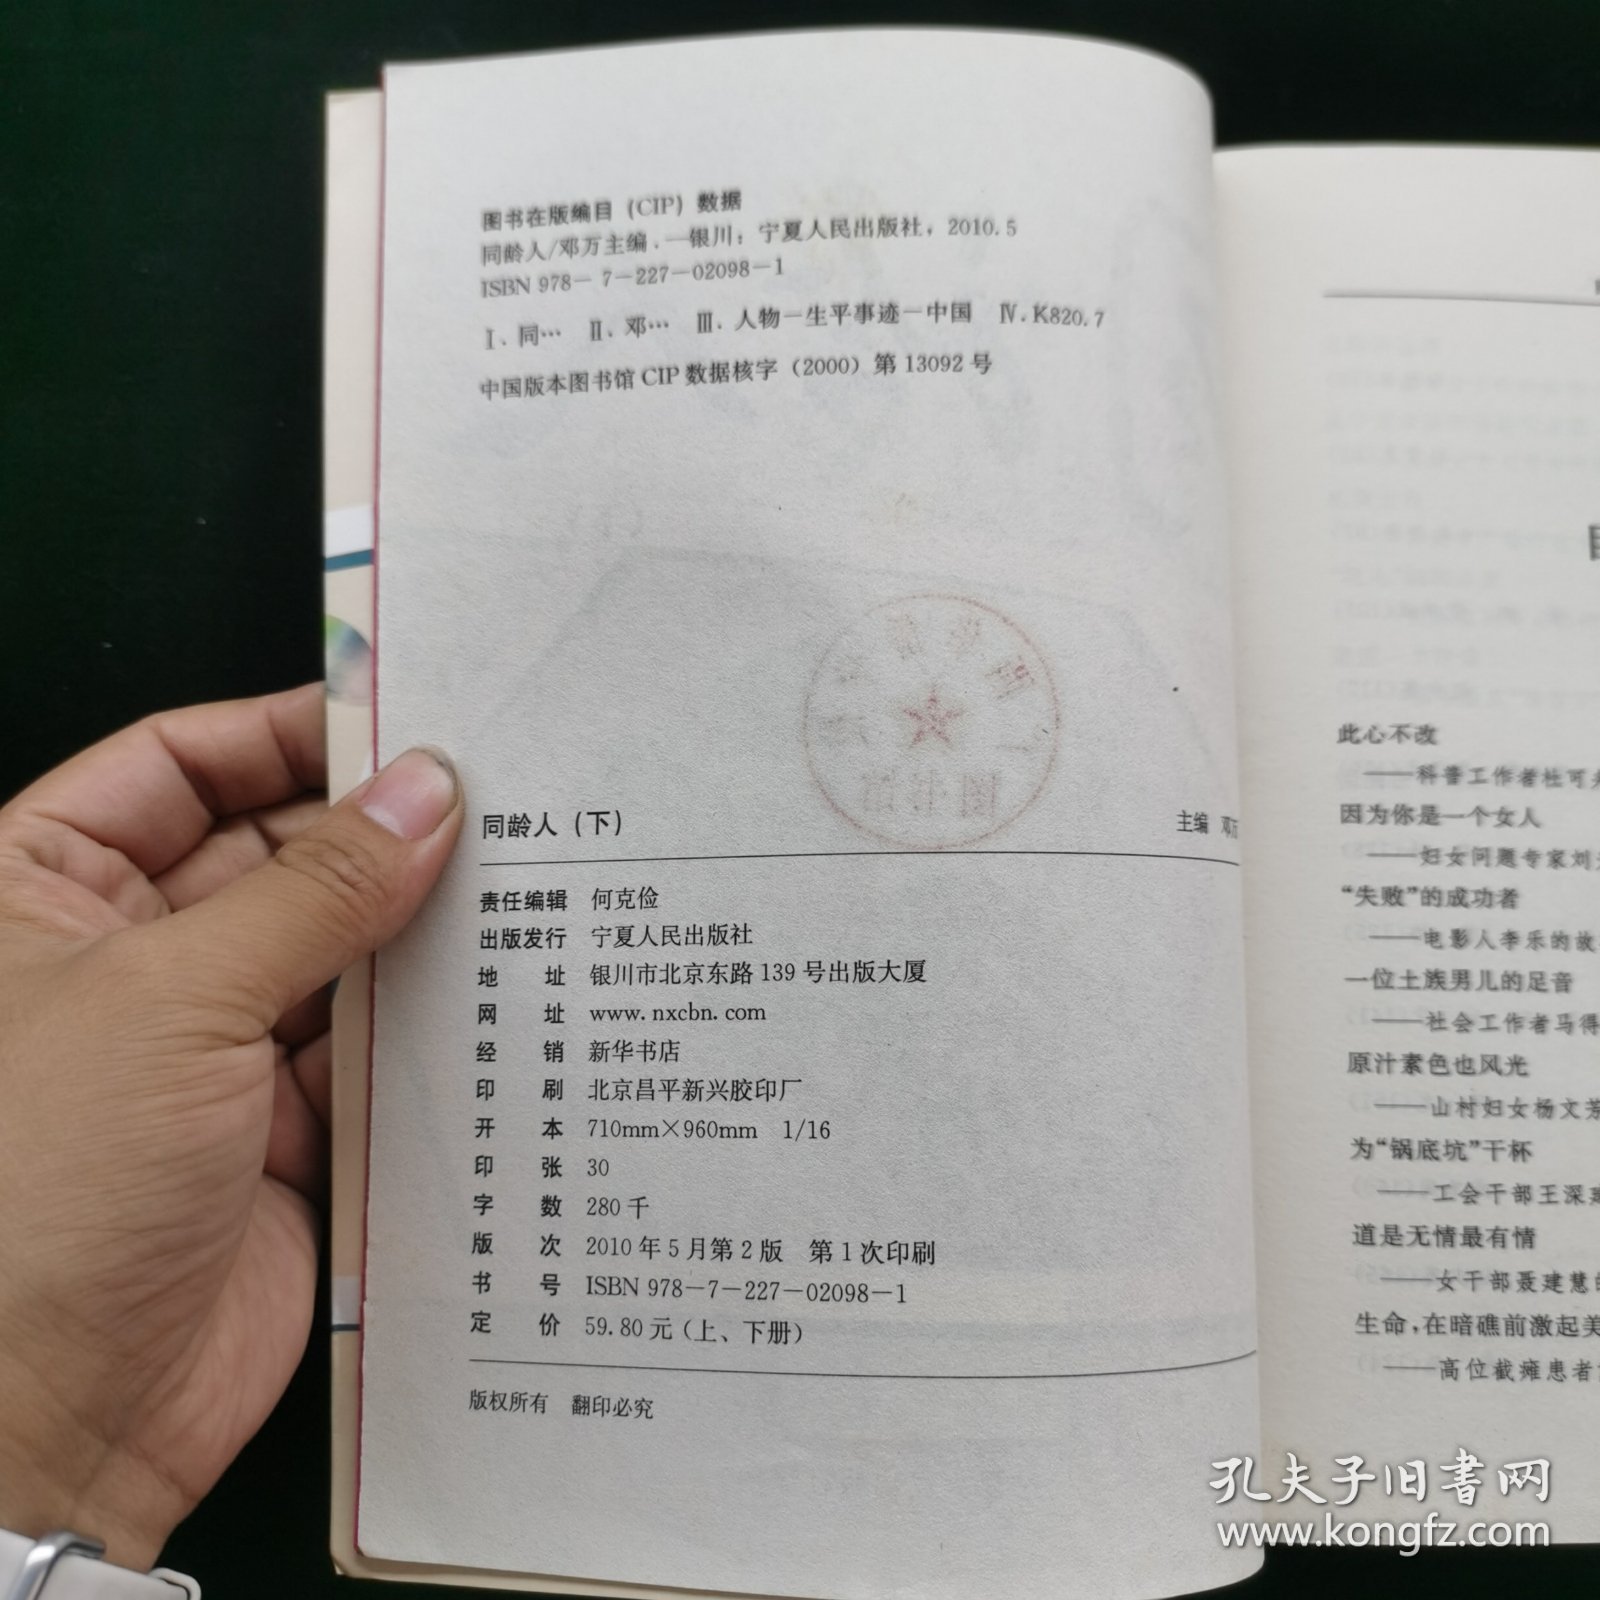 图书在版编目（CIP）数据
同龄人/邓万主编.—银川：宁夏人民出版社，2010.5
ISBN 978－7－227－02098－1
Ⅰ.同… Ⅱ.邓… Ⅲ.人物－生平事迹－中国 Ⅳ.K820.7
中国版本图书馆CIP数据核字（2000）第13092号
图书馆
同龄人（下） 主编 邓万
责任编辑 何克俭
出版发行 宁夏人民出版社
地址 银川市北京东路139号出版大厦
网址 www.nxcbn.com
经销 新华书店
印刷 北京昌平新兴胶印厂
开本 710mm×960mm 1/16
印张 30
字数 280千
版次 2010年5月第2版 第1次印刷
书号 ISBN 978－7－227－02098－1
定价 59.80元（上、下册）
版权所有 翻印必究
此心不改
——科普工作者杜可
因为你是一个女人
——妇女问题专家刘
“失败”的成功者
——电影人李乐的故
一位土族男儿的足音
——社会工作者马得
原汁素色也风光
——山村妇女杨文芳
为“锅底坑”干杯
——工会干部王深
道是无情最有情
——女干部聂建慧的
生命，在暗礁前激起美
——高位截瘫患者
孔夫子旧书网
www.kongfz.com